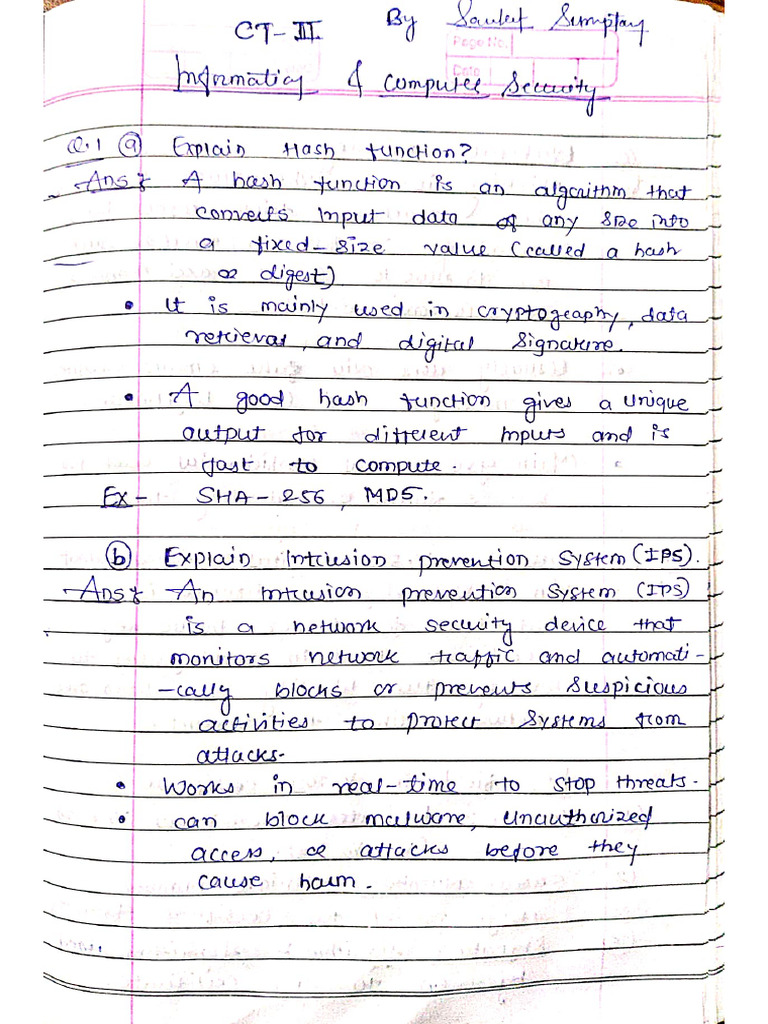 CT-III By
Page No.
Date
Information & Computer Security
Q.1 (a) Explain Hash function?
Ans: A hash function is an algorithm that
converts input data of any size into
a fixed-size value (called a hash
or digest)
• It is mainly used in cryptography, data
retrieval, and digital signature.
• A good hash function gives a unique
output for different inputs and is
fast to compute.
Ex - SHA-256, MD5.
(b) Explain Intrusion prevention system (IPS).
Ans: An intrusion prevention system (IPS)
is a network security device that
monitors network traffic and automati-
-cally blocks or prevents suspicious
activities to protect systems from
attacks.
• Works in real-time to stop threats.
• can block malware, unauthorized
access, or attacks before they
cause harm.